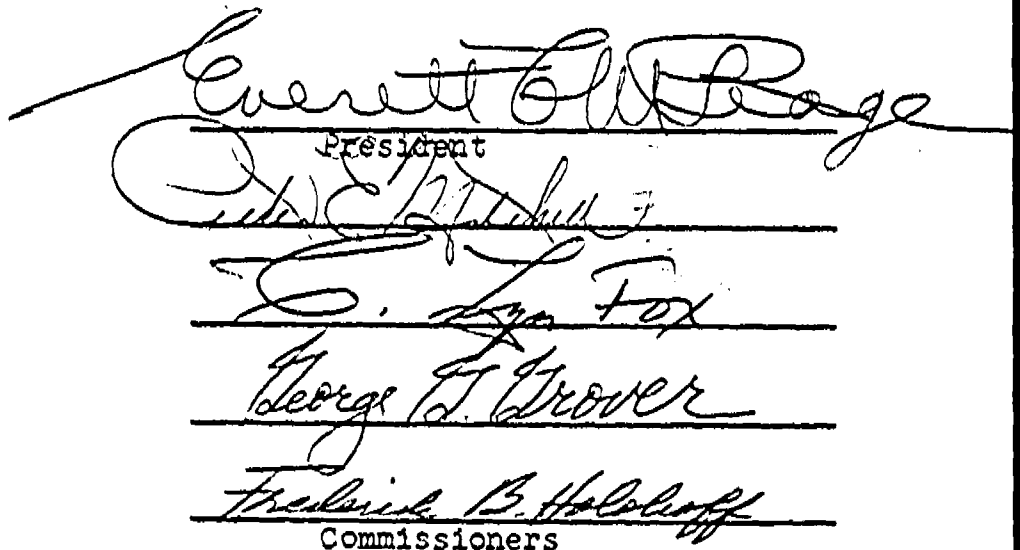 Everett C. McKeage
President
C. Lyn Fox
George G. Grover
Frederick B. Holoboff
Commissioners